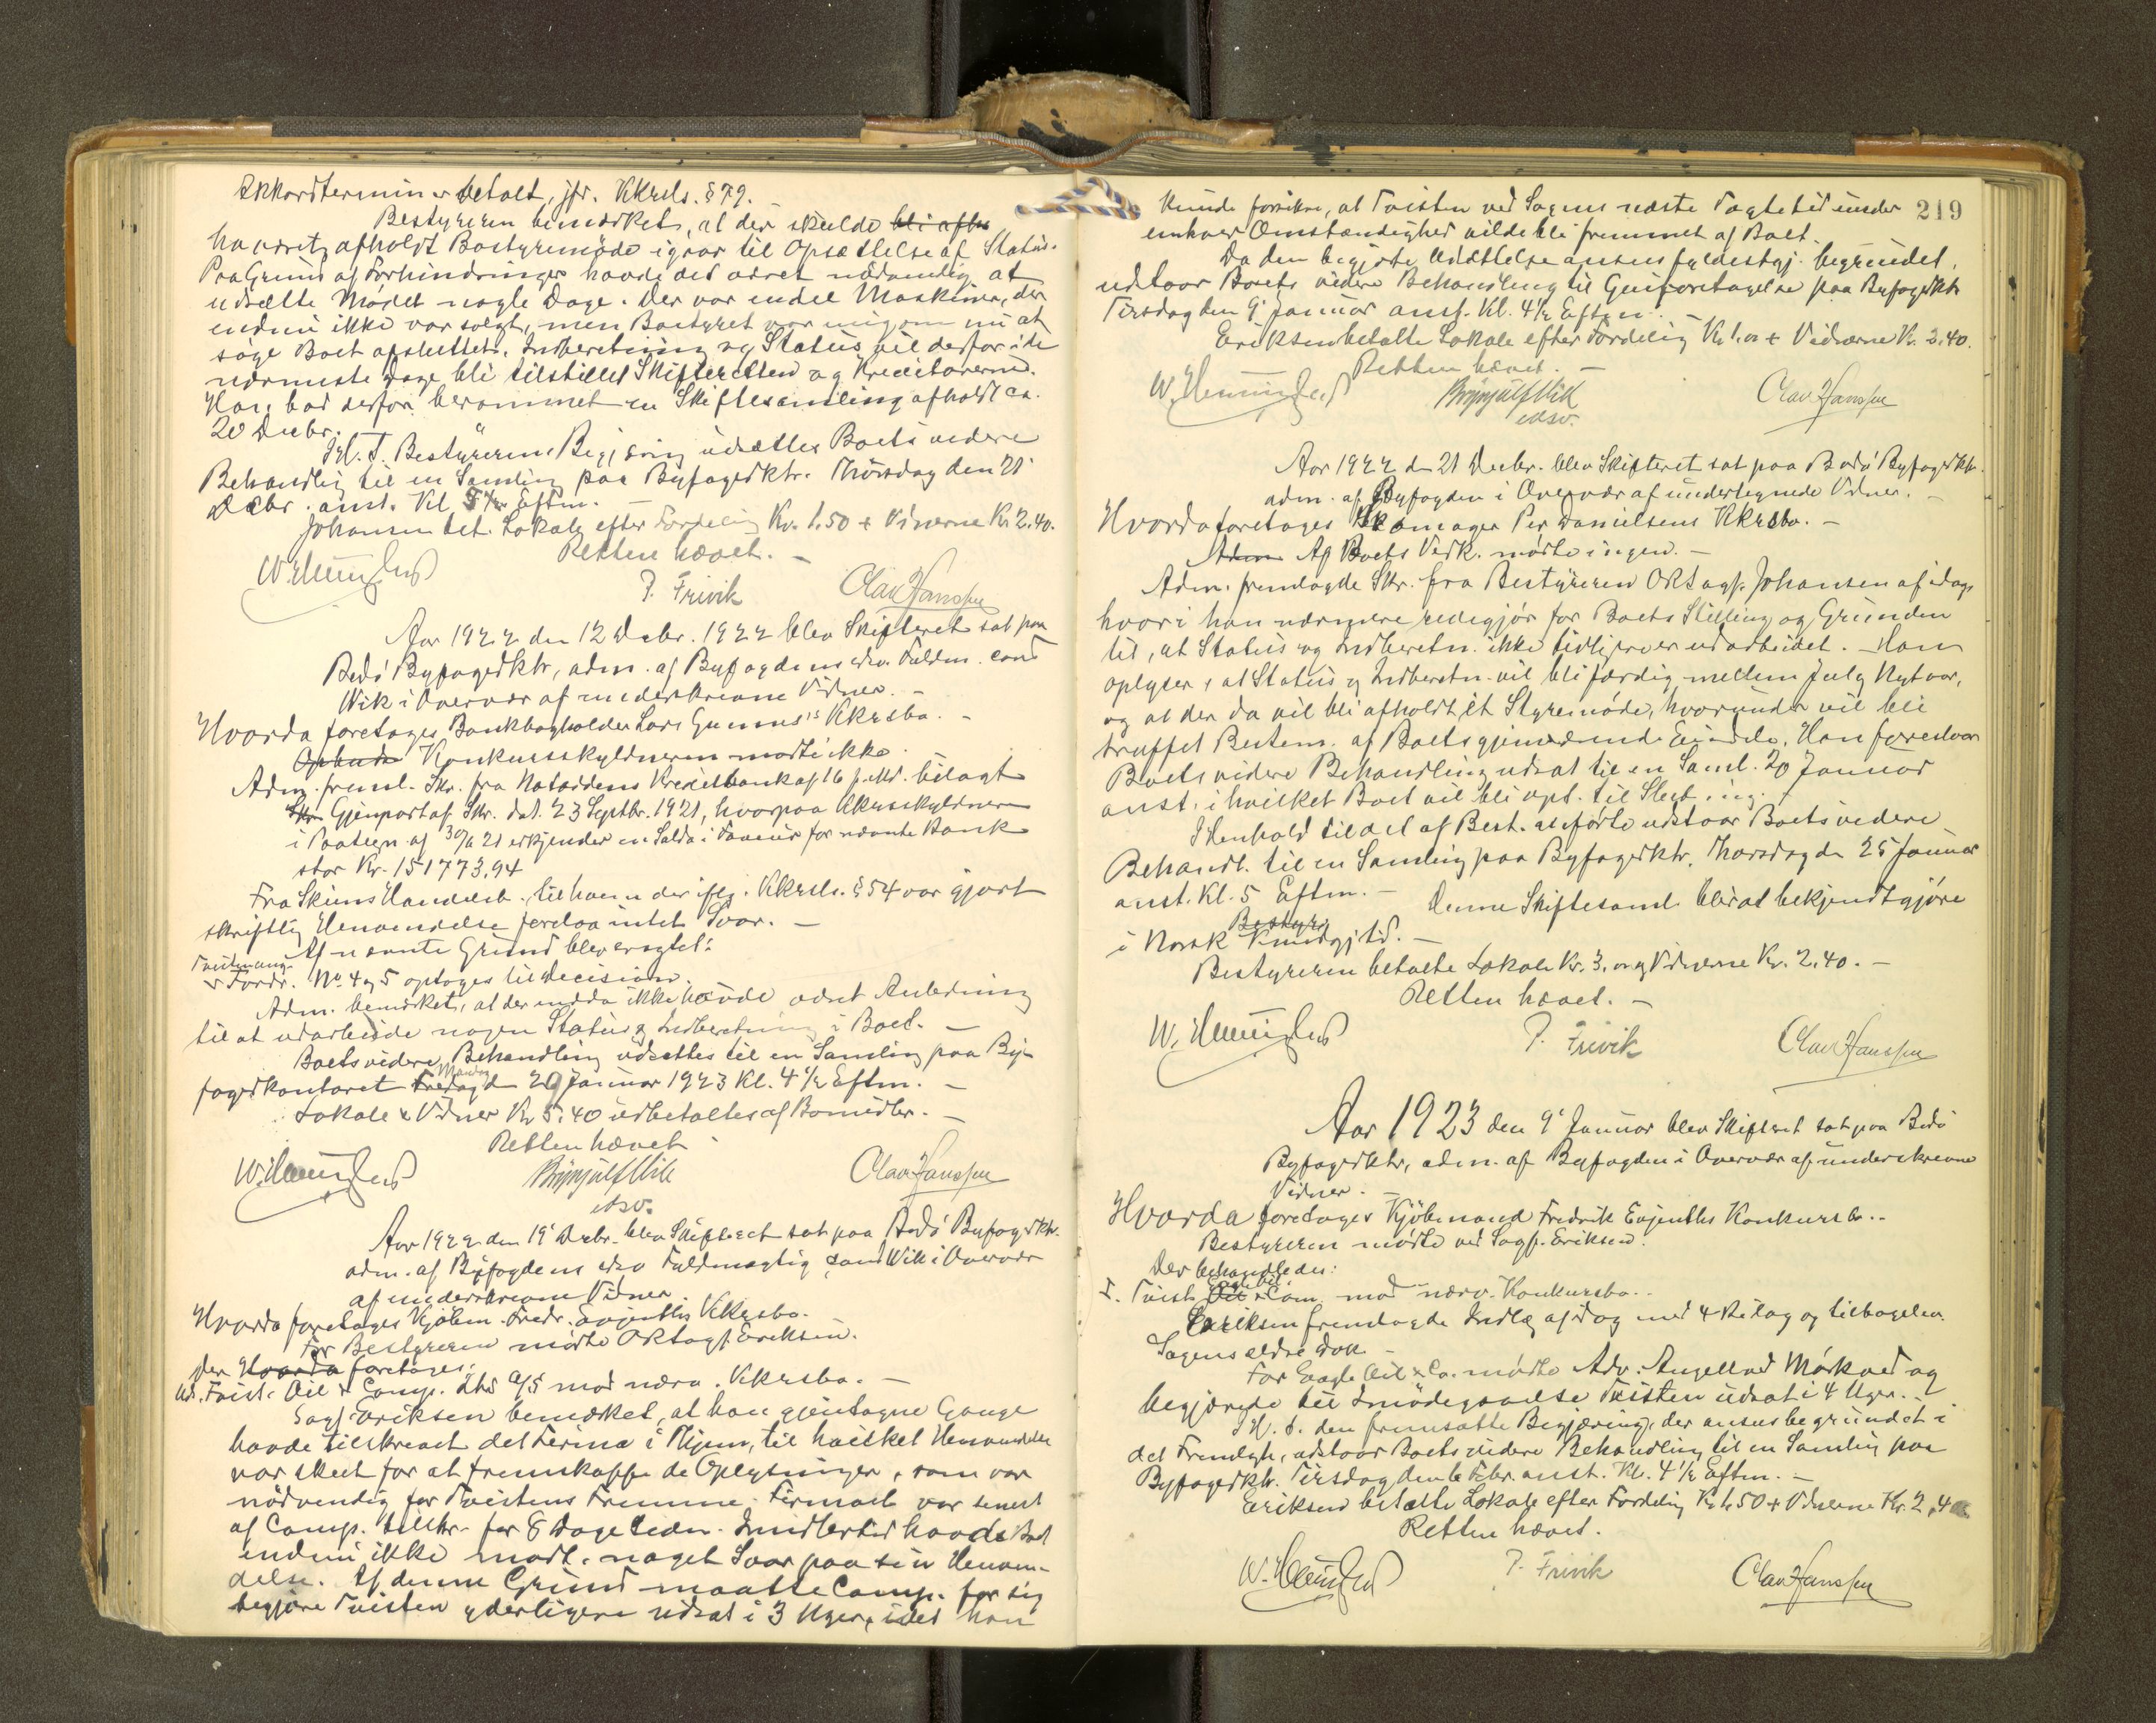 Akkordtermin er betalt, jfr. Kkrsls. § 79.
Bestyreren bemærket, at der skulde bli afh
ha været afholdt Bostyremöde igaar til Opsættelse af Status.
Paa Grund af Forhindringer havde det været nödvendig at
udsætte Mödet nogle Dage. Der var endel Maskiner, der
endnu ikke var solgt, men Bostyret var enig om nu at
söge Boet afsluttet. Indberetning og Status vil derfor i de
nærmeste Dage bli tilstillet Skifteretten og Kreditorerne.
Han bad derfor berammet en Skiftesamling afholdt ca.
20 Decbr.
Ifl. Bestyrerens Begjæring udsættes Boets videre
Behandlig til en Samling paa Byfogedktr. Thorsdag den 21
Decbr. anst. Kl. 5 Eftm.
Johansen bet. Lokale efter Fordeling Kr. 1.50 + Vidnerne Kr. 2.40.
Retten hævet. –
P. Frivik Olav Hanssen
Aar 1922 den 12 Decbr. 1922 blev Skifteret sat paa
Bodö Byfogedktr, adm. af Byfogdens edsv. Fuldm. cand
Wik i Overvær af underskrevne Vidner. –
Hvorda foretages Bankbogholder Lars Kkrsbo. –
Konkursskyldneren mödte ikke.
Adm. freml. Skr. fra Notoddens Kreditbank af 16 f. Md. bilagt
Skr. Gjenpart af Skr. dat. 23 Septbr. 1921, hvorpaa Kkrsskyldneren
i Paategn. af 30/9 21 erkjender en Saldo i Faveur for nævnte Bank
stor Kr. 151773,94
Fra Skiens Handelsb. til hvem der iflg. Kkrsls. § 54 var gjort
skriftlig Henvendelse forelaa intet Svar. –
Af nævnte Grund blev eragtet:
Tvistmaal
Fordr. No 4 og 5 optages til Decision.
Adm. bemærket, at der endda ikke havde været Anledning
til at udarbeide nogen Status & Indberetning i Boet. –
Boets videre Behandling udsættes til en Samling paa By-
Mandag
fogedkontoret Fredag d 29 Januar 1923 Kl. 4 1/2 Eftm. –
Lokale & Vidner Kr 5.40 udbetaltes af Bomidler. –
Retten hævet
Brynjulf Wik Olav Hanssen
edsv.
Aar 1922 den 19' Decbr. blev Skifteret sat paa Bodö Byfogedktr.
adm. af Byfogdens edsv Fuldmægtig cand Wik i Overvær
af underskrevne Vidner.
Hvorda foretages Kjöbm. Fredr. Evjenths Kkrsbo.
For Bestyreren mödte ORsagf. Eriksen.
Der Hvorda foretages:
Tvist: Oil & Comp. A/S mod nærv. Kkrsbo. –
Sagf. Eriksen bemærket, at han gjentagne Gange
havde tilskrevet det Firma i til hvilket Henvendelse
var skeet for at fremskaffe de Oplysninger, som var
nödvendig for Tvistens Fremme. Firmaet var senest
af Comp. tilskr. for 8 Dage siden. Imidlertid havde Boet
endnu ikke modt. noget Svar paa sin Henven-
delse. Af denne Grund maatte Comp. for sig
begjære Tvisten yderligere udsat i 3 Uger, idet han
219
kunde forsikre, at Tvisten ved Sagens næste Tagtetid under
enhver Omstændighed vilde bli fremmet af Boet.
Da den begjærte Udsættelse ansees fyldestgj. begrundet,
udstaar Boets videre Behandling til Gjenforetagelse paa Byfogedktr
Tirsdag den 9' Januar anst. Kl. 4 1/2 Eftm. –
Eriksen betalte Lokale efter Fordelig Kr 1.00 + Vidnerne Kr. 2.40.
Retten hævet. –
Brynjulf Wik Olav Hanssen
edsv.
Aar 1922 d 21 Decbr. blev Skifteret sat paa Bodö Byfogedktr.
adm. af Byfogden i Overvær af undertegnede Vidner. –
Hvorda foretages Skomager Per Danielsens Kkrsbo. –
Adm Af Boets Vedk. mödte ingen. –
Adm. fremlagde Skr. fra Bestyreren ORsagf. Johansen af idag,
hvori han nærmere redegjör for Boets Stilling og Grunden
til, at Status og Indberetn. ikke tidligere er udarbeidet. – Han
oplyser, at Status og Indberetn. vil bli færdig mellem Jul og Nytaar,
og at der da vil bli afholdt et Styremöde, hvorunder vil bli
truffet Bestem. af Boets gjenværende Eiendele. Han foreslaar
Boets videre Behandling udsat til en Saml. 20 Januar
anst. i hvilket Boet vil bli opt. til Slutning.
I Henhold til det af Best. anförte udstaar Boets videre
Behandl. til en Samling paa Byfogedktr. Thorsdag de 25 Januar
anst. Kl. 5 Eftm. – Denne Skiftesaml. blir at bekjendtgjöre
i Norsk Kundgj.tid. –
Bestyreren betalte Lokale Kr. 3.00 og Vidnerne Kr. 2.40. –
Retten hævet. –
P. Frivik Olav Hanssen
Aar 1923 den 9' Januar blev Skifteret sat paa Bodö
Byfogedktr, adm. af Byfogden i Overvær af underskrevne
Vidner. –
Hvorda foretages Kjöbmand Fredrik Evjenths Konkursb. –
Bestyreren mödte ved Sagf. Eriksen.
Der behandledes:
I. Tvist Eagle Oil & Com. mod nærv. Konkursbo. –
Eriksen fremlagde Indlæg af idag med 4 Bilag og tilbagelev.
Sagens ældre Dok. –
For Eagle Oil & Co. mödte Adv. Angellved Mörkved og
begjærede til Imödegaaelse Tvisten udsat i 4 Uger. –
I H. t. den fremsatte Begjæring, der ansees begrundet i
det Fremlagte, udstaar Boets videre Behandling til en Samling paa
Byfogedktr. Tirsdag den 6 Febr. anst. Kl. 4 1/2 Eftm. –
Eriksen betalte Lokale efter Fordelig Kr 1.50 + Vidnerne Kr. 2,40
Retten hævet.
P. Frivik Olav Hanssen